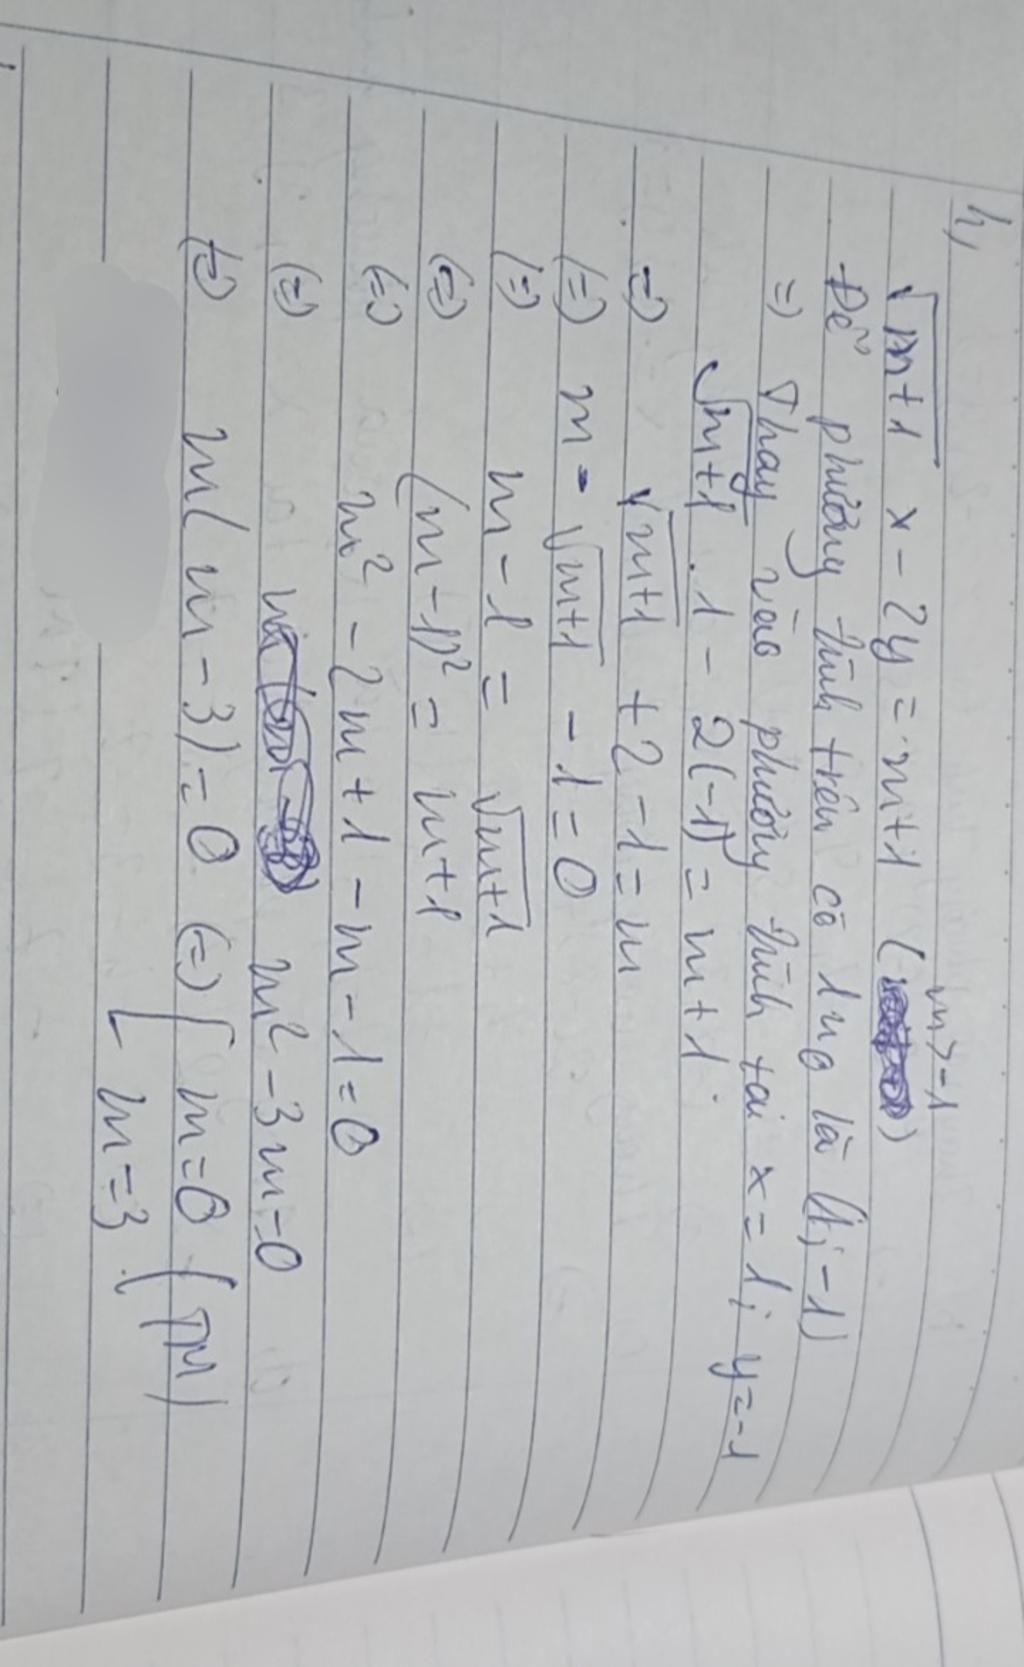 h,
√m+1 x - 2y = m+1 (m>-1)
Để phương trình trên có 1 ngo là (1; -1)
=> Thay vào phương trình tại x = 1; y = -1
√m+1 . 1 - 2(-1) = m+1.
=> √m+1 + 2 - 1 = m
(=) m - √m+1 - 1 = 0
(=) m - 1 = √m+1
(=) (m - 1)² = m+1
(=) m² - 2m + 1 - m - 1 = 0
(=) m² - 3m = 0
(=) m(m - 3) = 0 (=) [ m = 0 (TM)
m = 3